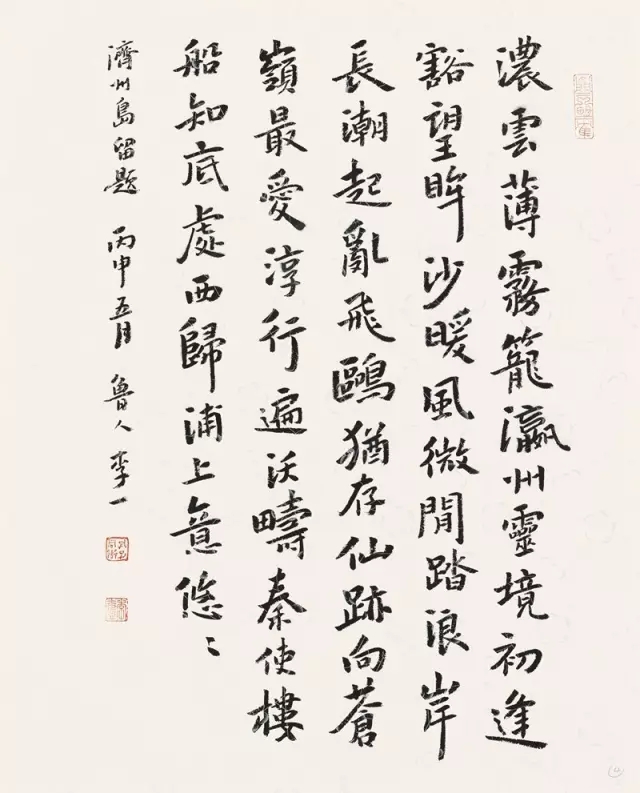 濃雲薄霧籠瀛州靈境初逢
豁望眸沙暖風微閒踏浪岸
長潮起亂飛鷗猶存仙跡向蒼
嶺最愛淳行遍沃疇秦使樓
船知底處西歸浦上意悠〻
濟州島留題 丙申五月 魯人李一